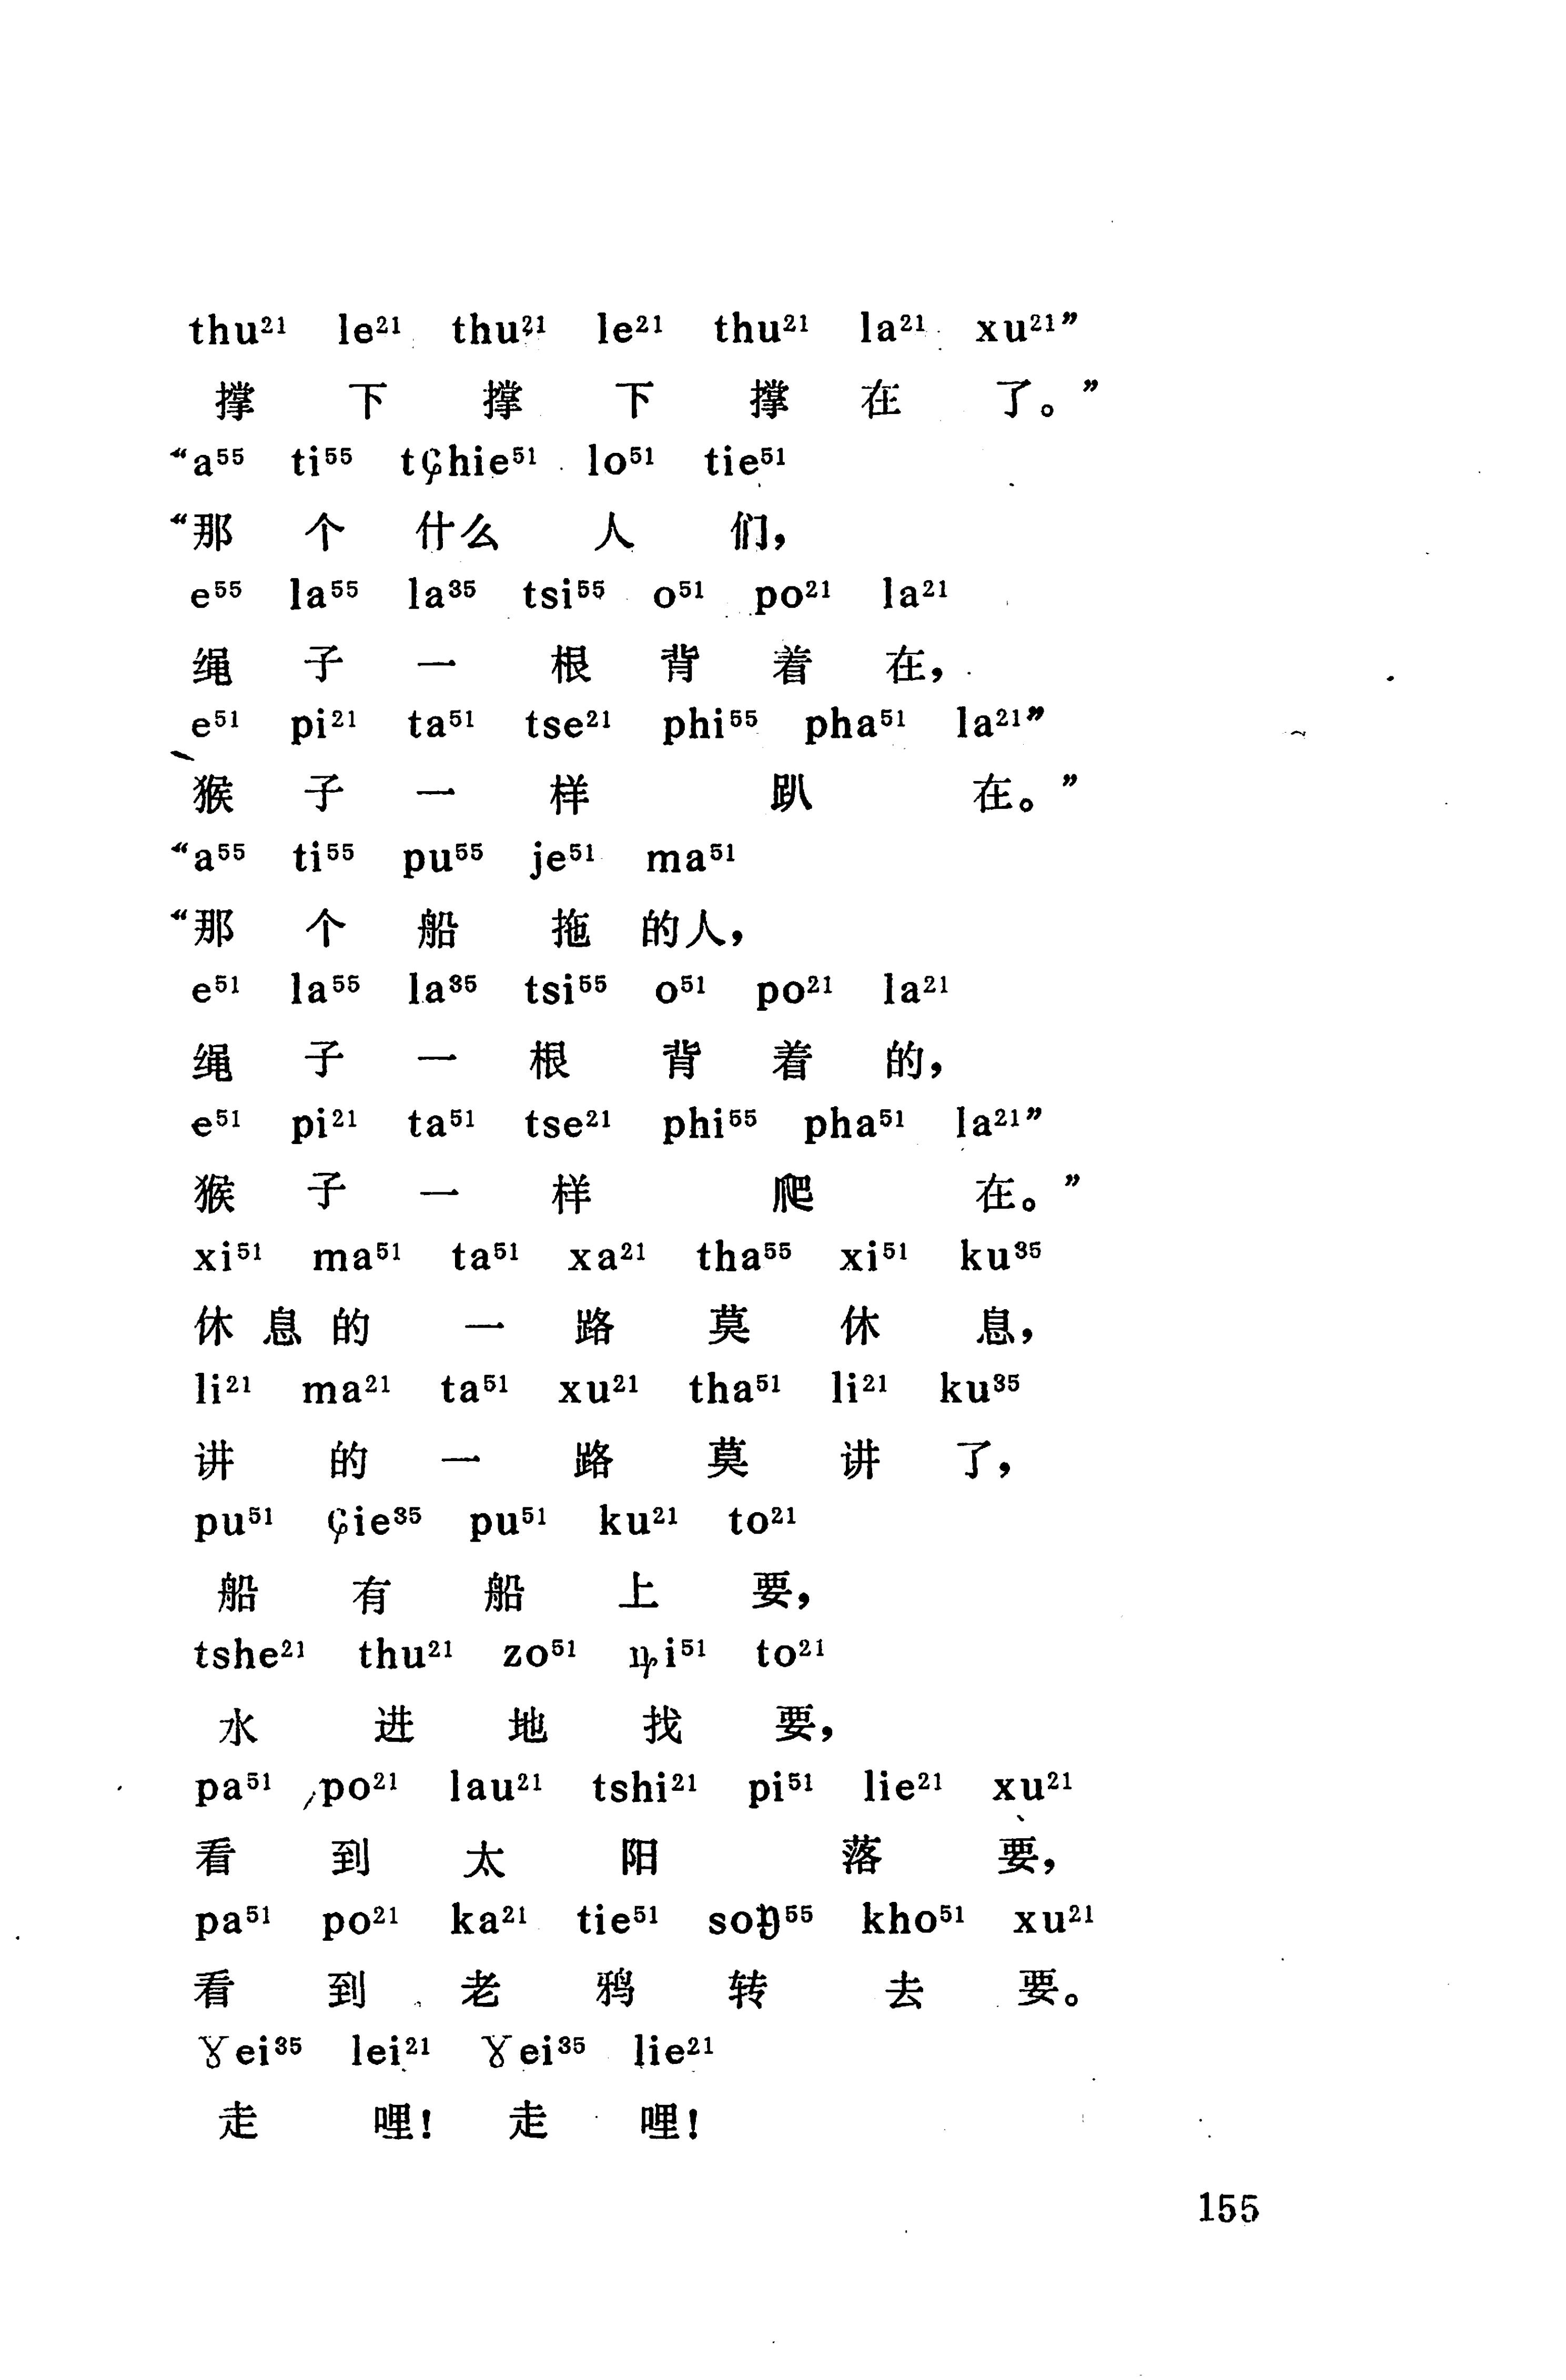 thu²¹ le²¹ thu²¹ le²¹ thu²¹ la²¹ xu²¹”
撑 下 撑 下 撑 在 了。”
“a⁵⁵ ti⁵⁵ tɕhie⁵¹ lo⁵¹ tie⁵¹
“那 个 什么 人 们，
e⁵⁵ la⁵⁵ la³⁵ tsi⁵⁵ o⁵¹ po²¹ la²¹
绳 子 一 根 背 着 在，
e⁵¹ pi²¹ ta⁵¹ tse²¹ phi⁵⁵ pha⁵¹ la²¹”
猴 子 一 样 趴 在。”
“a⁵⁵ ti⁵⁵ pu⁵⁵ je⁵¹ ma⁵¹
“那 个 船 拖 的人，
e⁵¹ la⁵⁵ la³⁵ tsi⁵⁵ o⁵¹ po²¹ la²¹
绳 子 一 根 背 着 的，
e⁵¹ pi²¹ ta⁵¹ tse²¹ phi⁵⁵ pha⁵¹ la²¹”
猴 子 一 样 爬 在。”
xi⁵¹ ma⁵¹ ta⁵¹ xa²¹ tha⁵⁵ xi⁵¹ ku³⁵
休 息 的 一 路 莫 休 息，
li²¹ ma²¹ ta⁵¹ xu²¹ tha⁵¹ li²¹ ku³⁵
讲 的 一 路 莫 讲 了，
pu⁵¹ ɕie³⁵ pu⁵¹ ku²¹ to²¹
船 有 船 上 要，
tshe²¹ thu²¹ zo⁵¹ ȵi⁵¹ to²¹
水 进 地 找 要，
pa⁵¹ po²¹ lau²¹ tshi²¹ pi⁵¹ lie²¹ xu²¹
看 到 太 阳 落 要，
pa⁵¹ po²¹ ka²¹ tie⁵¹ soŋ⁵⁵ kho⁵¹ xu²¹
看 到 老 鸦 转 去 要。
ɣei³⁵ lei²¹ ɣei³⁵ lie²¹
走 哩！ 走 哩！
155